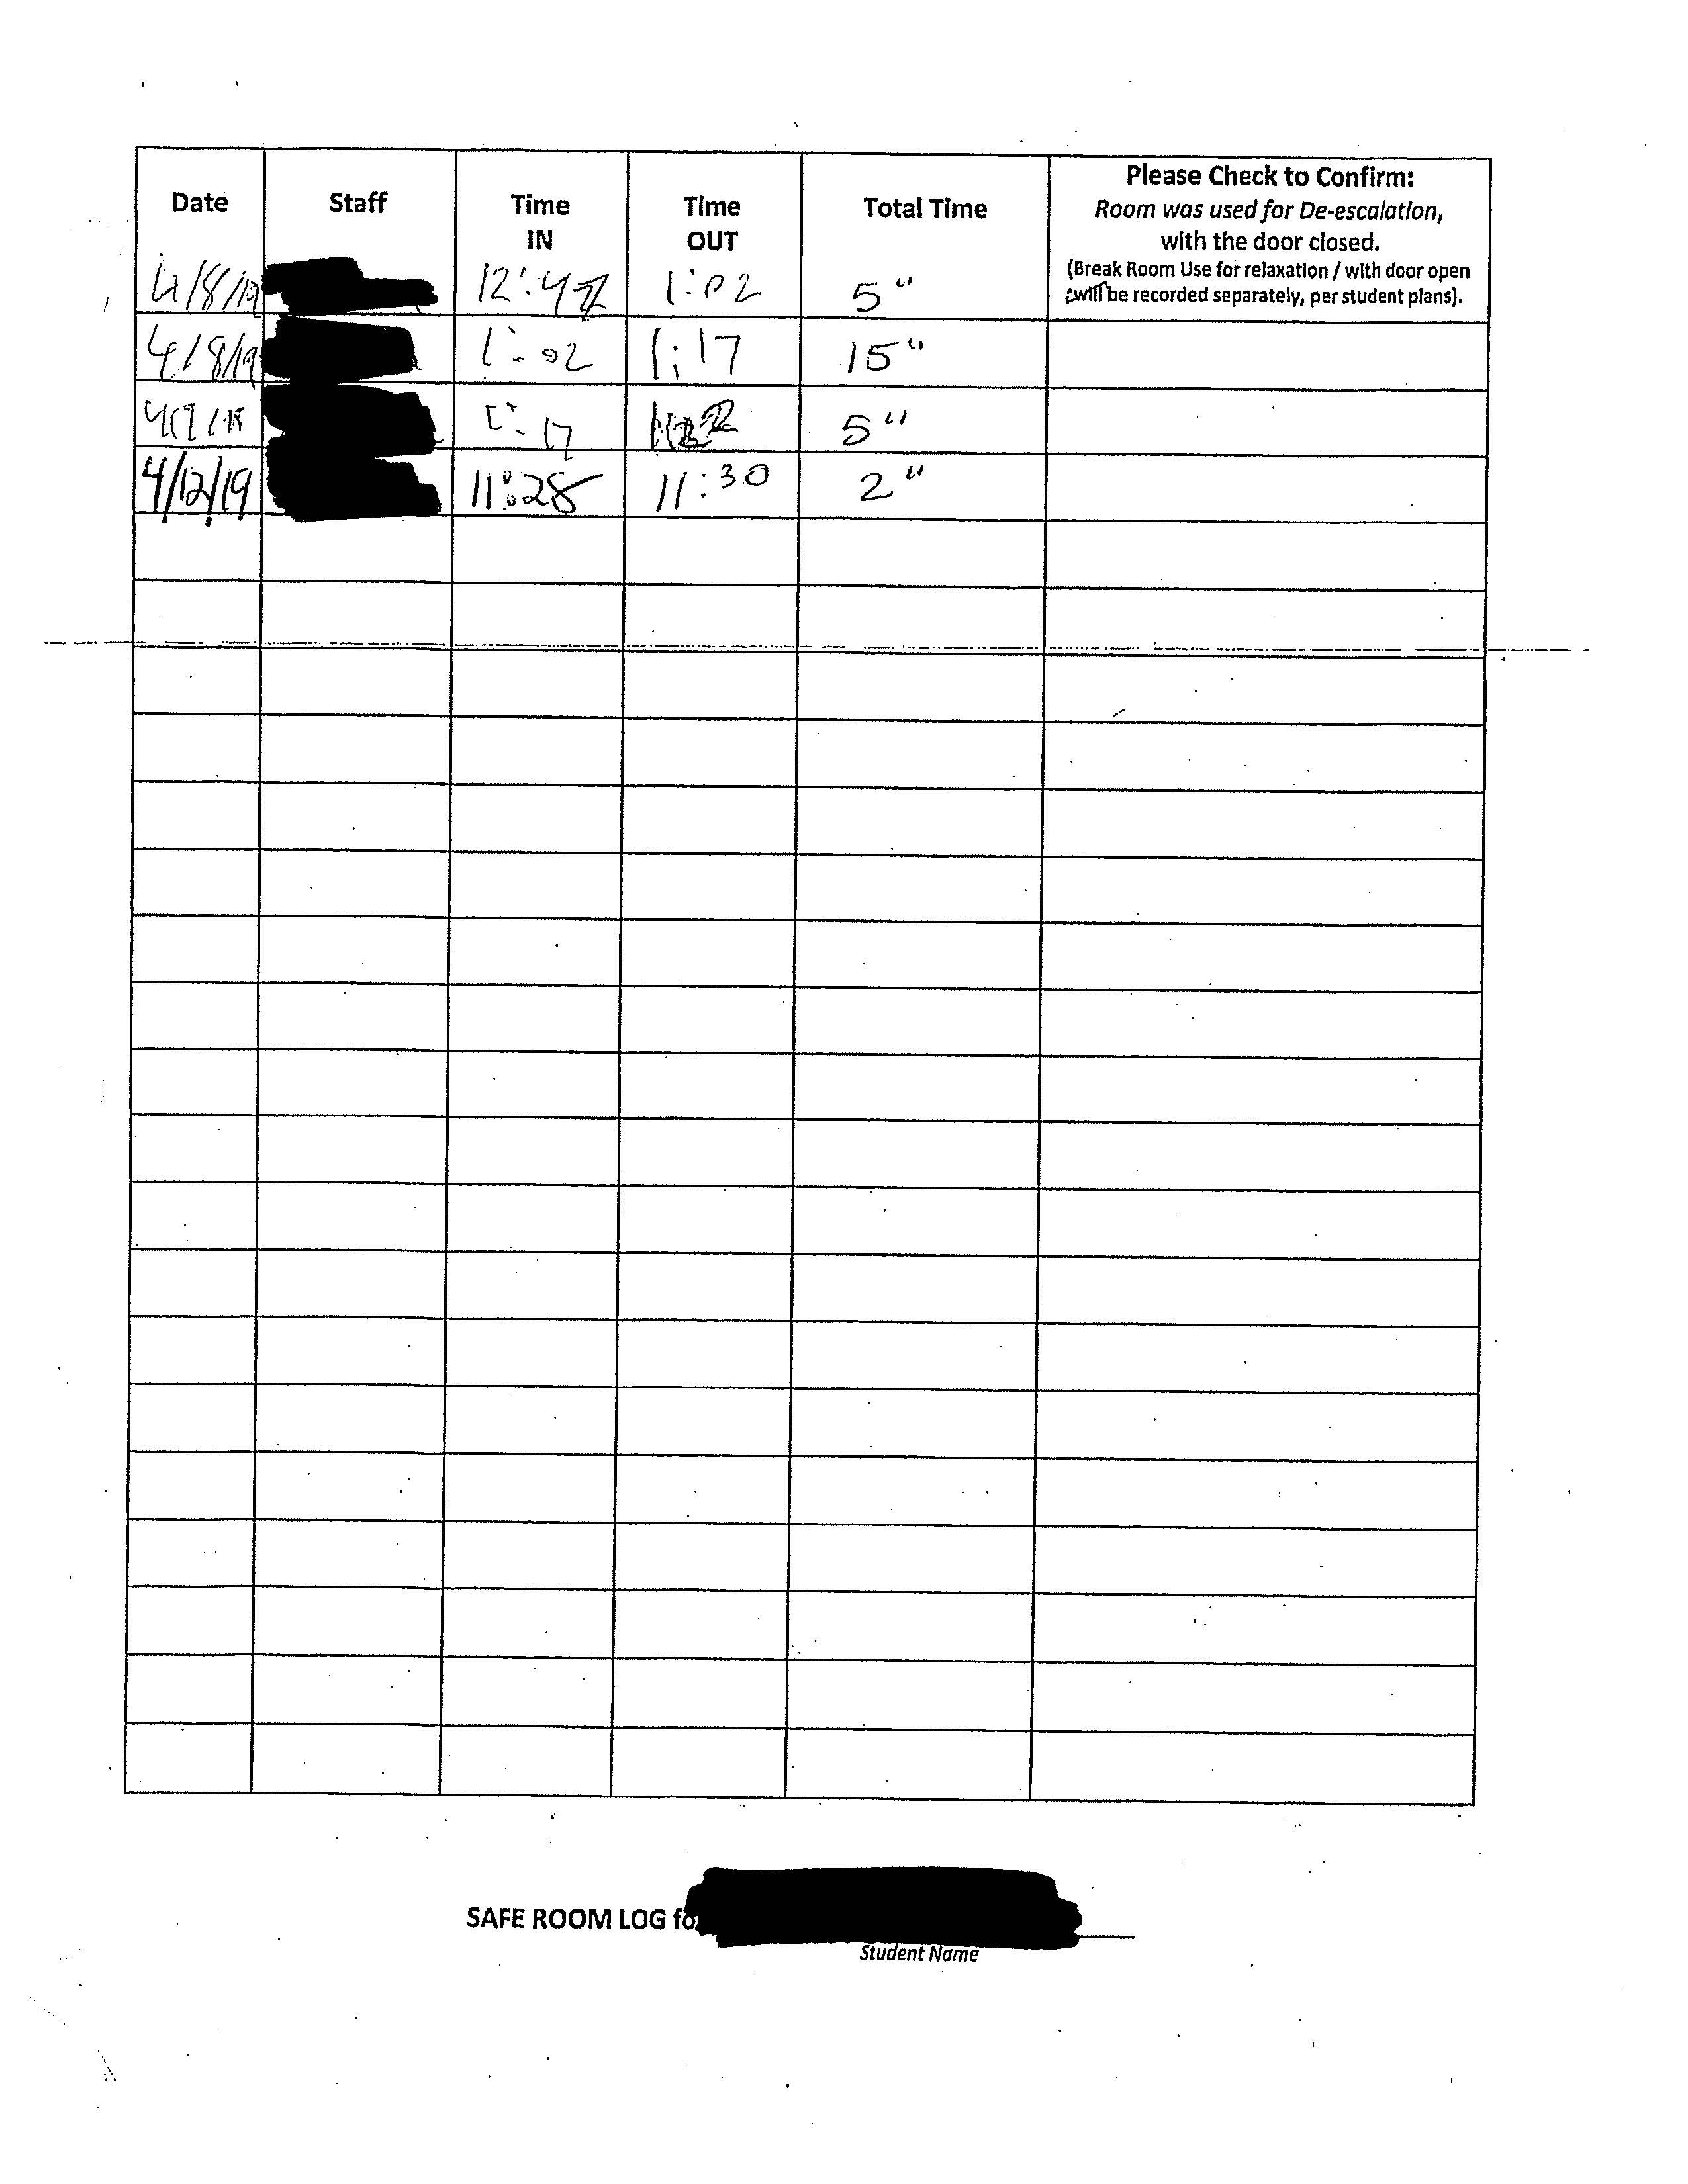 Date Staff Time IN Time OUT Total Time Please Check to Confirm:
Room was used for De-escalation,
with the door closed.
(Break Room Use for relaxation / with door open
will be recorded separately, per student plans).
4/8/19 1:02 5"
4/8/19 1:02 1:17 15"
1:17 5"
4/12/19 11:28 11:30 2"
SAFE ROOM LOG
Student Name